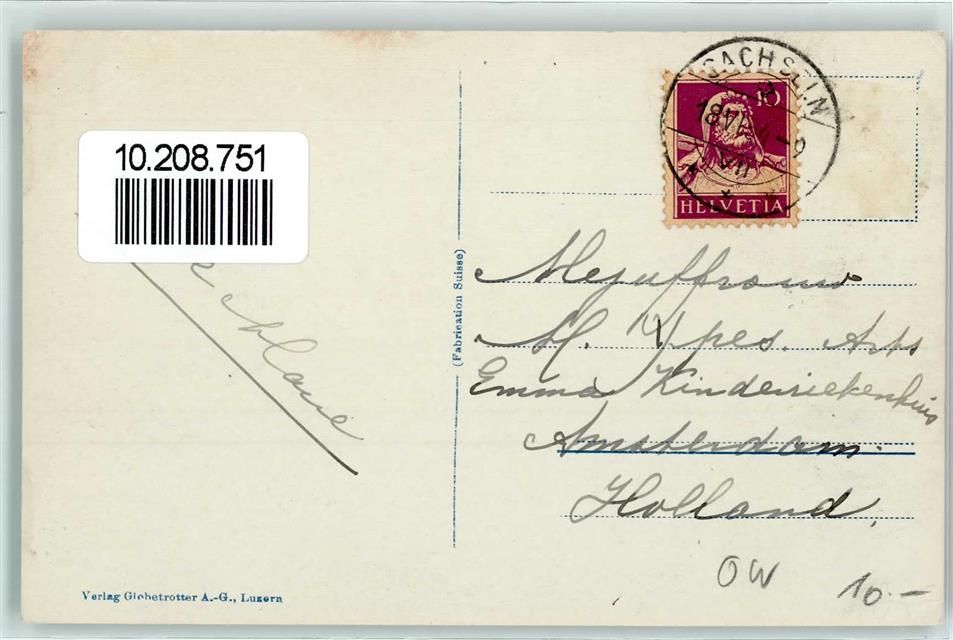 10.208.751
SACHSELN
18
VII
10
HELVETIA
(Fabrication Suisse)
Mejuffrouw
M. Ypes. Arts
Emma Kinderziekenhuis
Amsterdam.
Holland.
OW
10.-
Verlag Globetrotter A.-G., Luzern